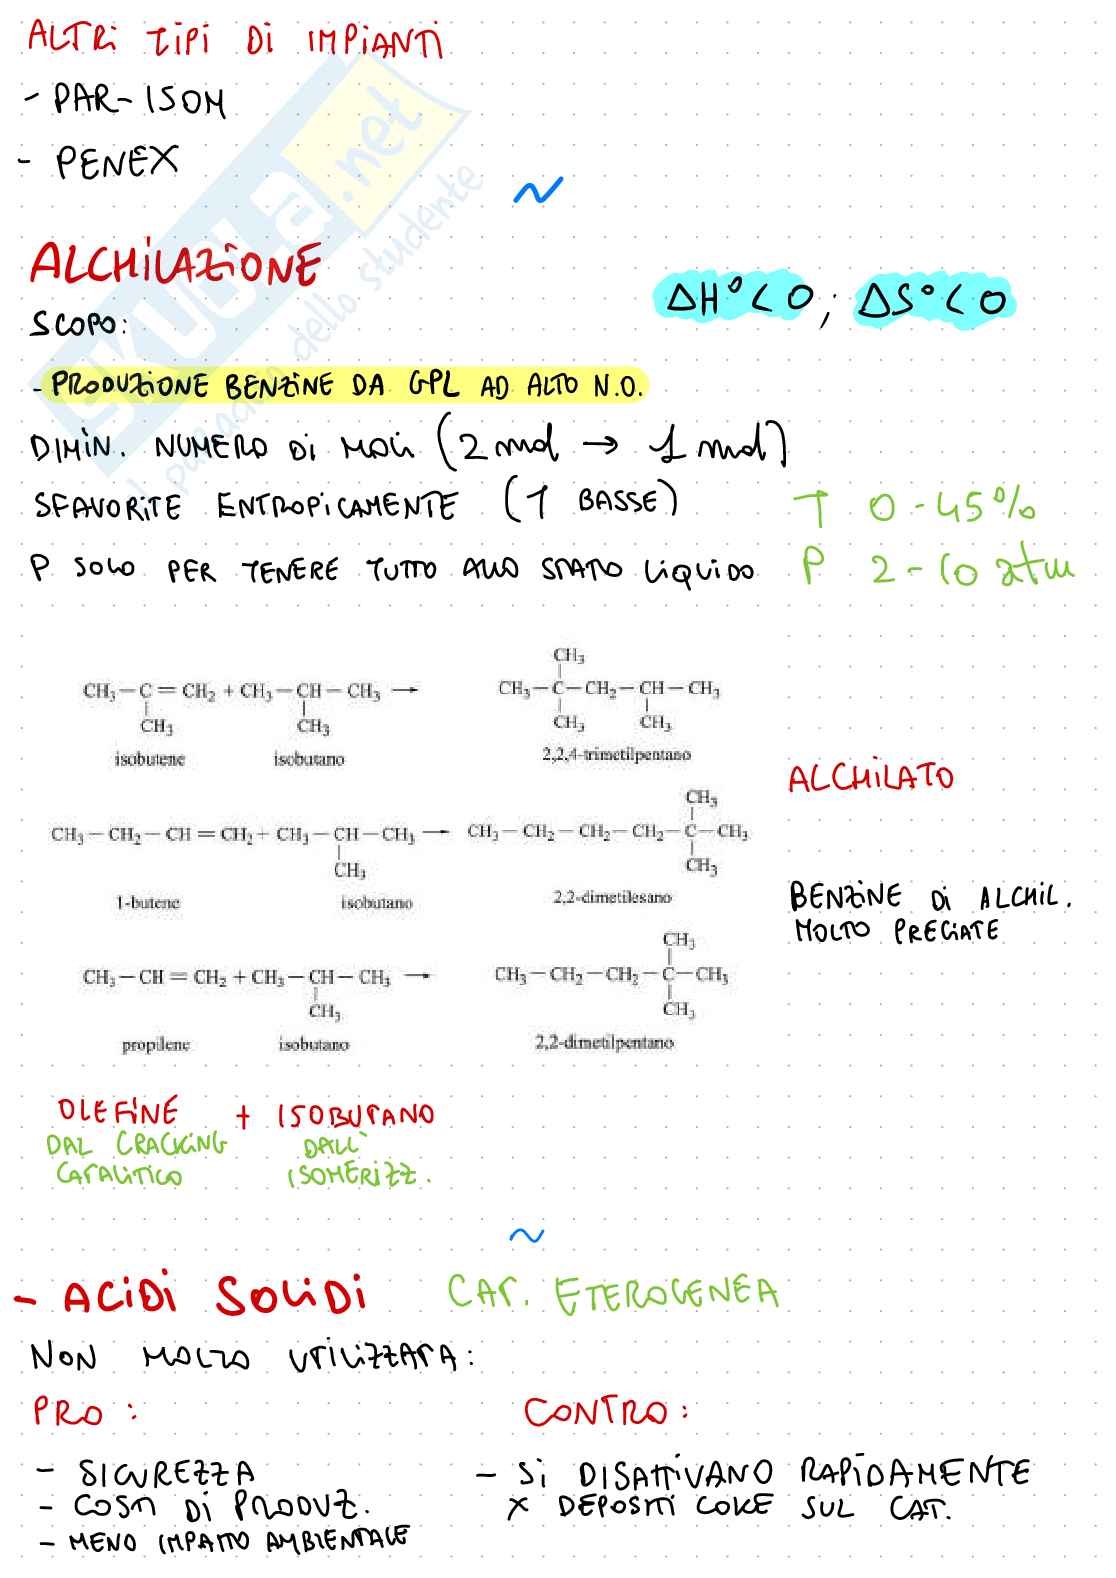 ALTRI TIPI DI IMPIANTI
- PAR-ISOM
- PENEX
~
SKUOLA.net
il paradiso dello studente
ALCHILAZIONE
ΔH°<0; ΔS°<0
SCOPO:
- PRODUZIONE BENZINE DA GPL AD ALTO N.O.
DIMIN. NUMERO DI MOLI (2 mol → 1 mol)
SFAVORITE ENTROPICAMENTE (T BASSE)
T 0-45%
P SOLO PER TENERE TUTTO ALLO STATO LIQUIDO
P 2-10 atm
CH3
CH3—C=CH2 + CH3—CH—CH3 → CH3—C—CH2—CH—CH3
CH3 CH3 CH3 CH3
isobutene isobutano 2,2,4-trimetilpentano
ALCHILATO
CH3
CH3—CH2—CH=CH2 + CH3—CH—CH3 → CH3—CH2—CH2—CH2—C—CH3
CH3 CH3
1-butene isobutano 2,2-dimetilesano
BENZINE DI ALCHIL.
MOLTO PREGIATE
CH3
CH3—CH=CH2 + CH3—CH—CH3 → CH3—CH2—CH2—C—CH3
CH3 CH3
propilene isobutano 2,2-dimetilpentano
OLEFINE + ISOBUTANO
DAL CRACKING DALL'
CATALITICO ISOMERIZZ.
~
- ACIDI SOLIDI CAT. ETEROGENEA
NON MOLTO UTILIZZATA:
PRO: CONTRO:
- SICUREZZA - SI DISATTIVANO RAPIDAMENTE
- COSTI DI PRODUZ. X DEPOSITI COKE SUL CAT.
- MENO IMPATTO AMBIENTALE